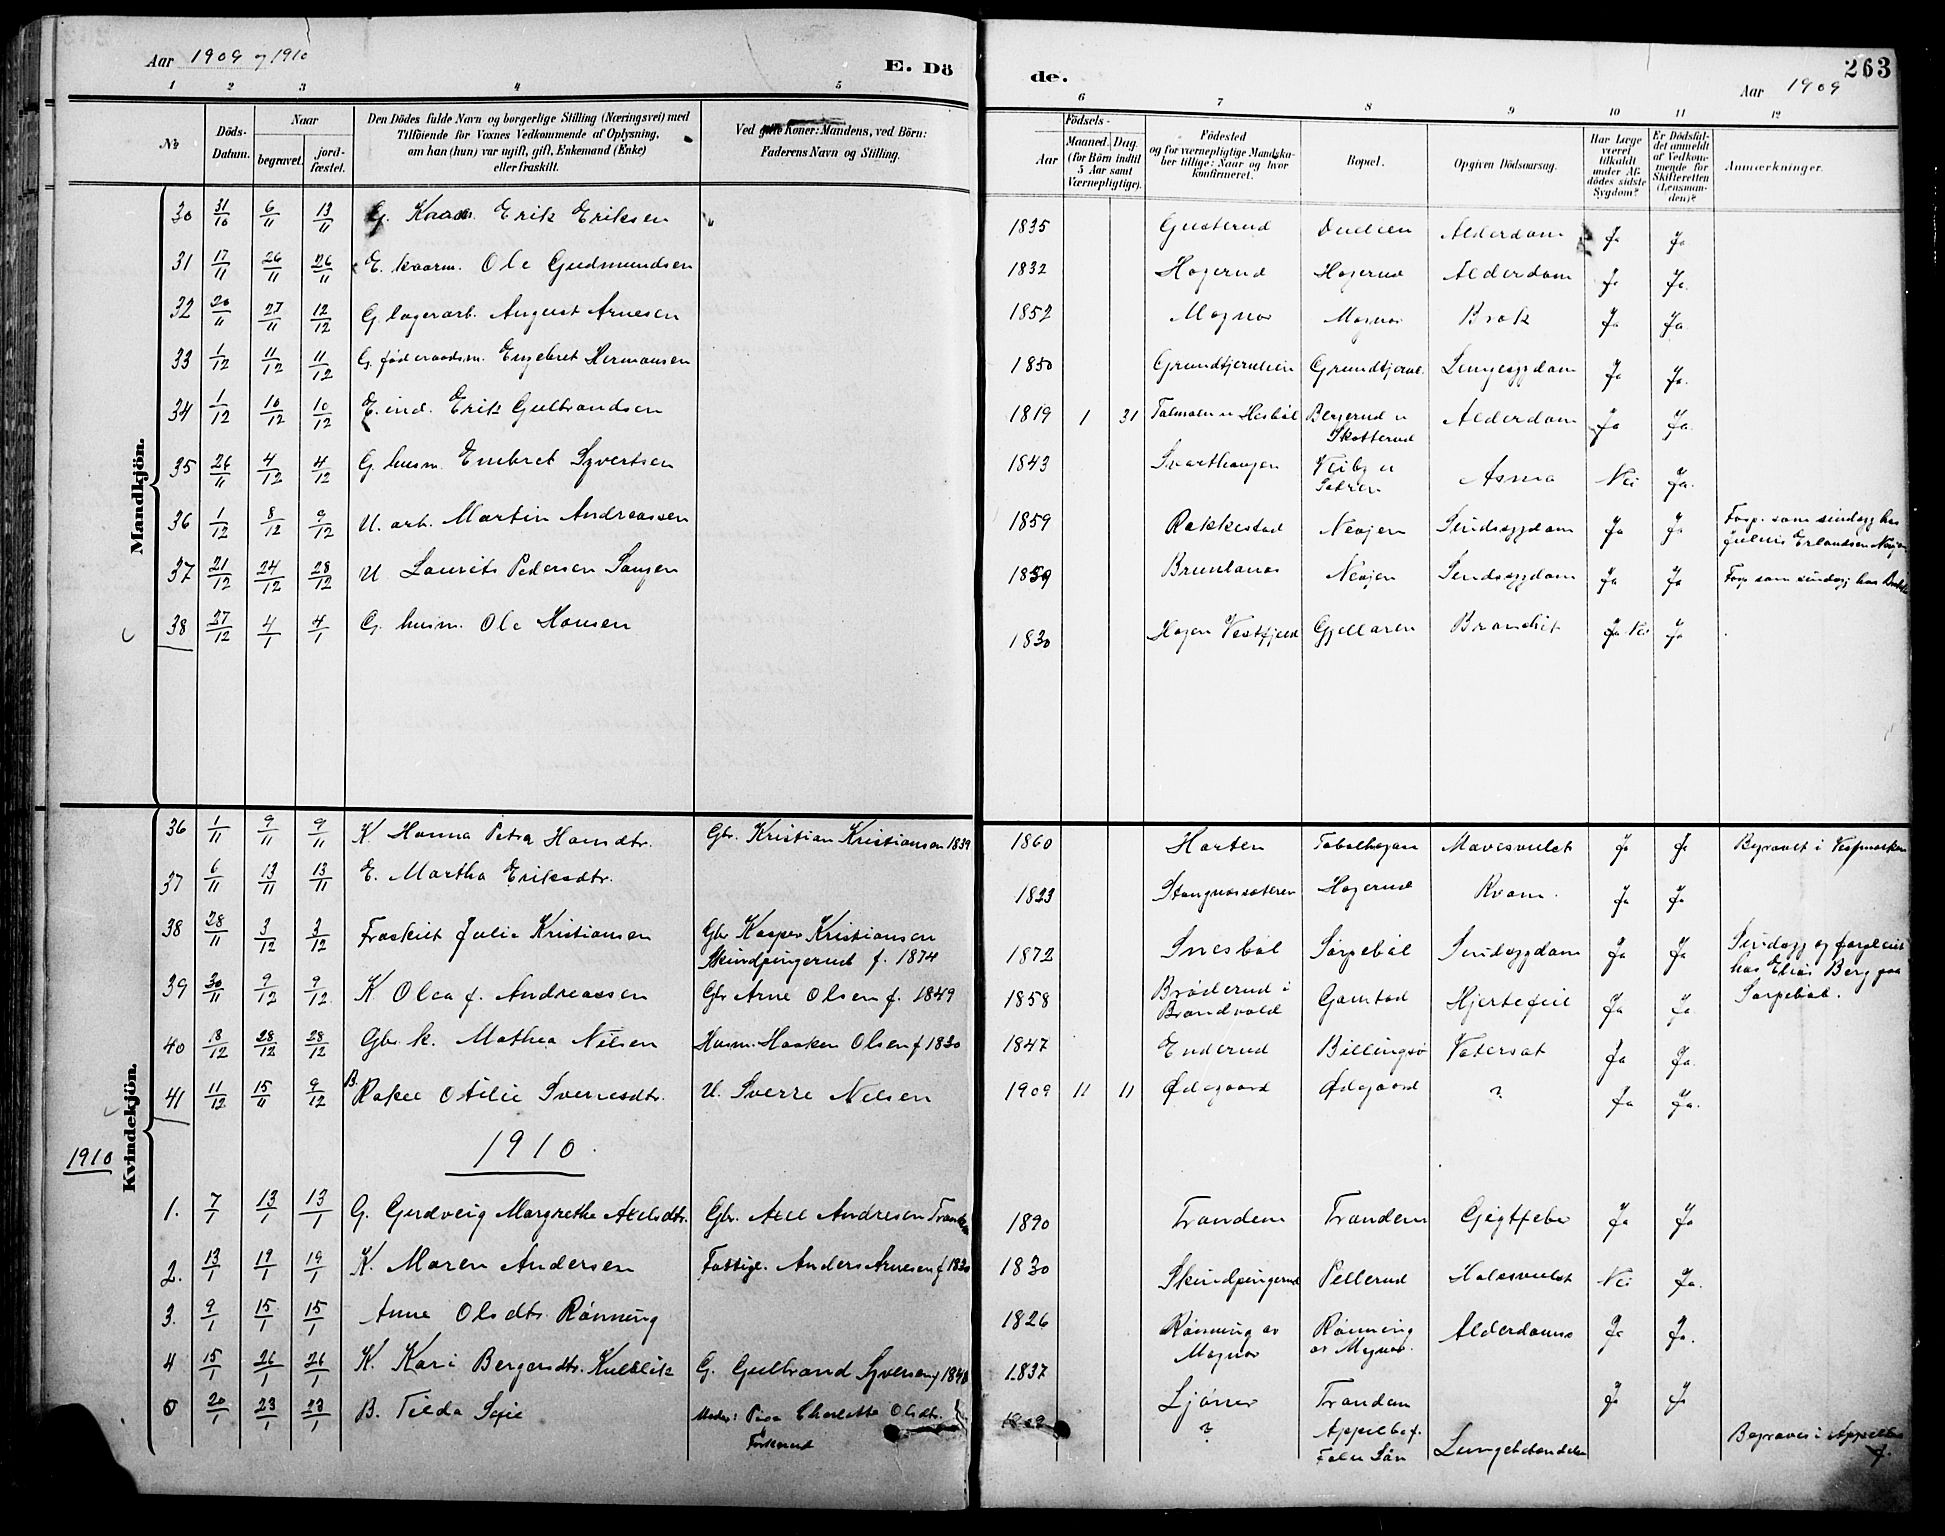 Aar 1909 og 1910
E. Dö
de.
Aar 1909
263
1 2 3 4 5 6 7 8 9 10 11 12
No
Döds-Datum.
Naar
begravet.
jordfæstet.
Den Dödes fulde Navn og borgerlige Stilling (Næringsvei) med
Tilföiende for Voxnes Vedkommende af Oplysning,
om han (hun) var ugift, gift, Enkemand (Enke)
eller fraskilt.
Ved gifte Koner: Mandens, ved Börn:
Faderens Navn og Stilling.
Födsels-
Aar
Maaned. Dag.
(for Börn indtil
5 Aar samt
Værnepligtige).
Födested
og for værnepligtige Mandskaber tillige: Naar og hvor
konfirmeret.
Bopæl.
Opgiven Dödsaarsag.
Har Læge
været
tilkaldt
under Afdödes sidste
Sygdom?
Er Dödsfaldet anmeldt
af Vedkommende for
Skifteretten
(Lensmanden)?
Anmærkninger.
Mandkjön.
30 31/10 6/11 13/11 G. Erik Eriksen 1835 Gusterud Alderdom Ja Ja
31 17/11 26/11 26/11 E. kaarm. Ole Gudmundsen 1832 Hogerud Hogerud Alderdom Ja Ja.
32 20/11 27/11 12/12 G. lagerarb. August Arnesen 1852 Magnor Magnor Brok Ja Ja
33 1/12 11/12 11/12 G. föderaadsm. Engebret Hermansen 1850 Grundtjernlien Grundtjernl. Lungesygdom Ja Ja.
34 1/12 10/12 10/12 E. ind. Erik Gulbrandsen 1819 1 31 Hesböl Bergerud u Skotterud Alderdom Ja Ja.
35 26/11 4/12 4/12 G. husm. Embret Syvertsen 1843 Svarthaugen Veiby u Sætren Asma Nei Ja.
36 1/12 8/12 9/12 U. arb. Martin Andreassen 1859 Rakkestad Nesjen Sindssygdom Ja Ja Forp. som sindssyg hos Julius Erlandsen
37 21/12 24/12 28/12 U Laurits Pedersen 1859 Brunlanes Nesjen Sindssygdom Ja Ja Forp som sindssyg hos
38 27/12 4/1 4/1 G. husm. Ole Hansen 1830 Hagen Vestfjeld Gjellaren Brandsit Ja Nei Ja
Kvindekjön.
36 1/11 9/11 9/11 K. Hanna Petra Hansdtr. Gbr. Kristian Kristiansen 1839 1860 Harten Tabelhagan Mavesvulst Ja Ja Begravet i Vestmarken
37 6/11 13/11 13/11 E. Martha Eriksdtr. 1823 Stangnæssæteren Hogerud Kvam. Ja Ja
38 28/11 3/12 3/12 Fraskilt Julie Kristiansen Gbr Kasper Kristiansen Skindpungerud f. 1874 1872 Snesböl Sorpeböl Sindssygdom Ja Ja Sindssyg og forpleiet hos Elias Berg paa Sorpeböl.
39 30/11 9/12 9/12 K Olea f. Andreassen Gbr Arne Olsen f. 1849 1858 Bröderud i Brandvold Gamtad Hjertefeil Ja Ja.
40 18/12 28/12 28/12 Gbr. k. Mathea Nilsen Husm. Haaken Olsen f 1830 1847 Enderud Billingsö Vatersot Ja Ja.
41 11/12 15/11 9/12 B. Rakel Otilie Sverresdtr. U. Sverre Nilsen 1909 11 11 Ödegaard Ödegaard ? Ja Ja.
1910
1910.
1. 7/1 13/1 13/1 G. Gudveig Margrethe Axelsdtr. Gbr. Axel Andresen 1890 Trandem Trandem Gigtfeber Ja Ja
2. 13/1 19/1 19/1 K. Maren Andersen Fattigl. Anders Arnesen f 1830 1830 Skindpungerud Pellerud Halssvulst Nei Ja.
3. 9/1 15/1 15/1 Anne Olsdtr. Rönning 1826 Rönning av Magnor Rönning av Magnor. Alderdoms Ja Ja.
4 15/1 26/1 26/1 K. Kari Bergersdtr. Kulblik G. Gulbrand Syversen f 1840 1837 Ljöner Trandem Ja Ja
5 20/1 23/1 23/1 B. Tilda Sofie Moder: Charlotta Olsdtr. 1909 ? Appelbo f. Falu Län Lungebetændelse Begraves i Appelbo f.